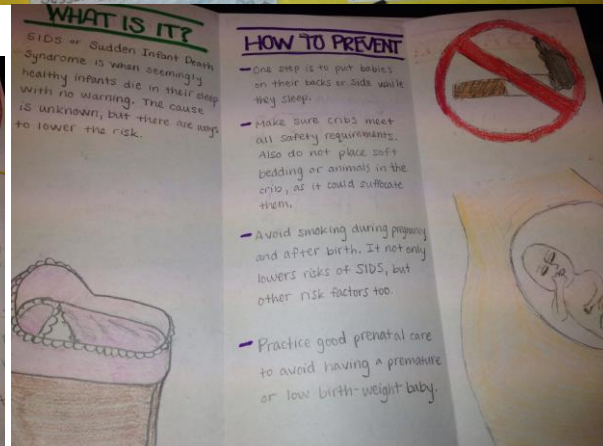 WHAT IS IT?
SIDS or Sudden Infant Death
Syndrome is when seemingly
healthy infants die in their sleep
with no warning. The cause
is unknown, but there are ways
to lower the risk.
HOW TO PREVENT
- One step is to put babies
on their backs or side while
they sleep.
- Make sure cribs meet
all safety requirements.
Also do not place soft
bedding or animals in the
crib, as it could suffocate
them.
- Avoid smoking during pregnancy
and after birth. It not only
lowers risks of SIDS, but
other risk factors too.
- Practice good prenatal care
to avoid having a premature
or low birth-weight baby.